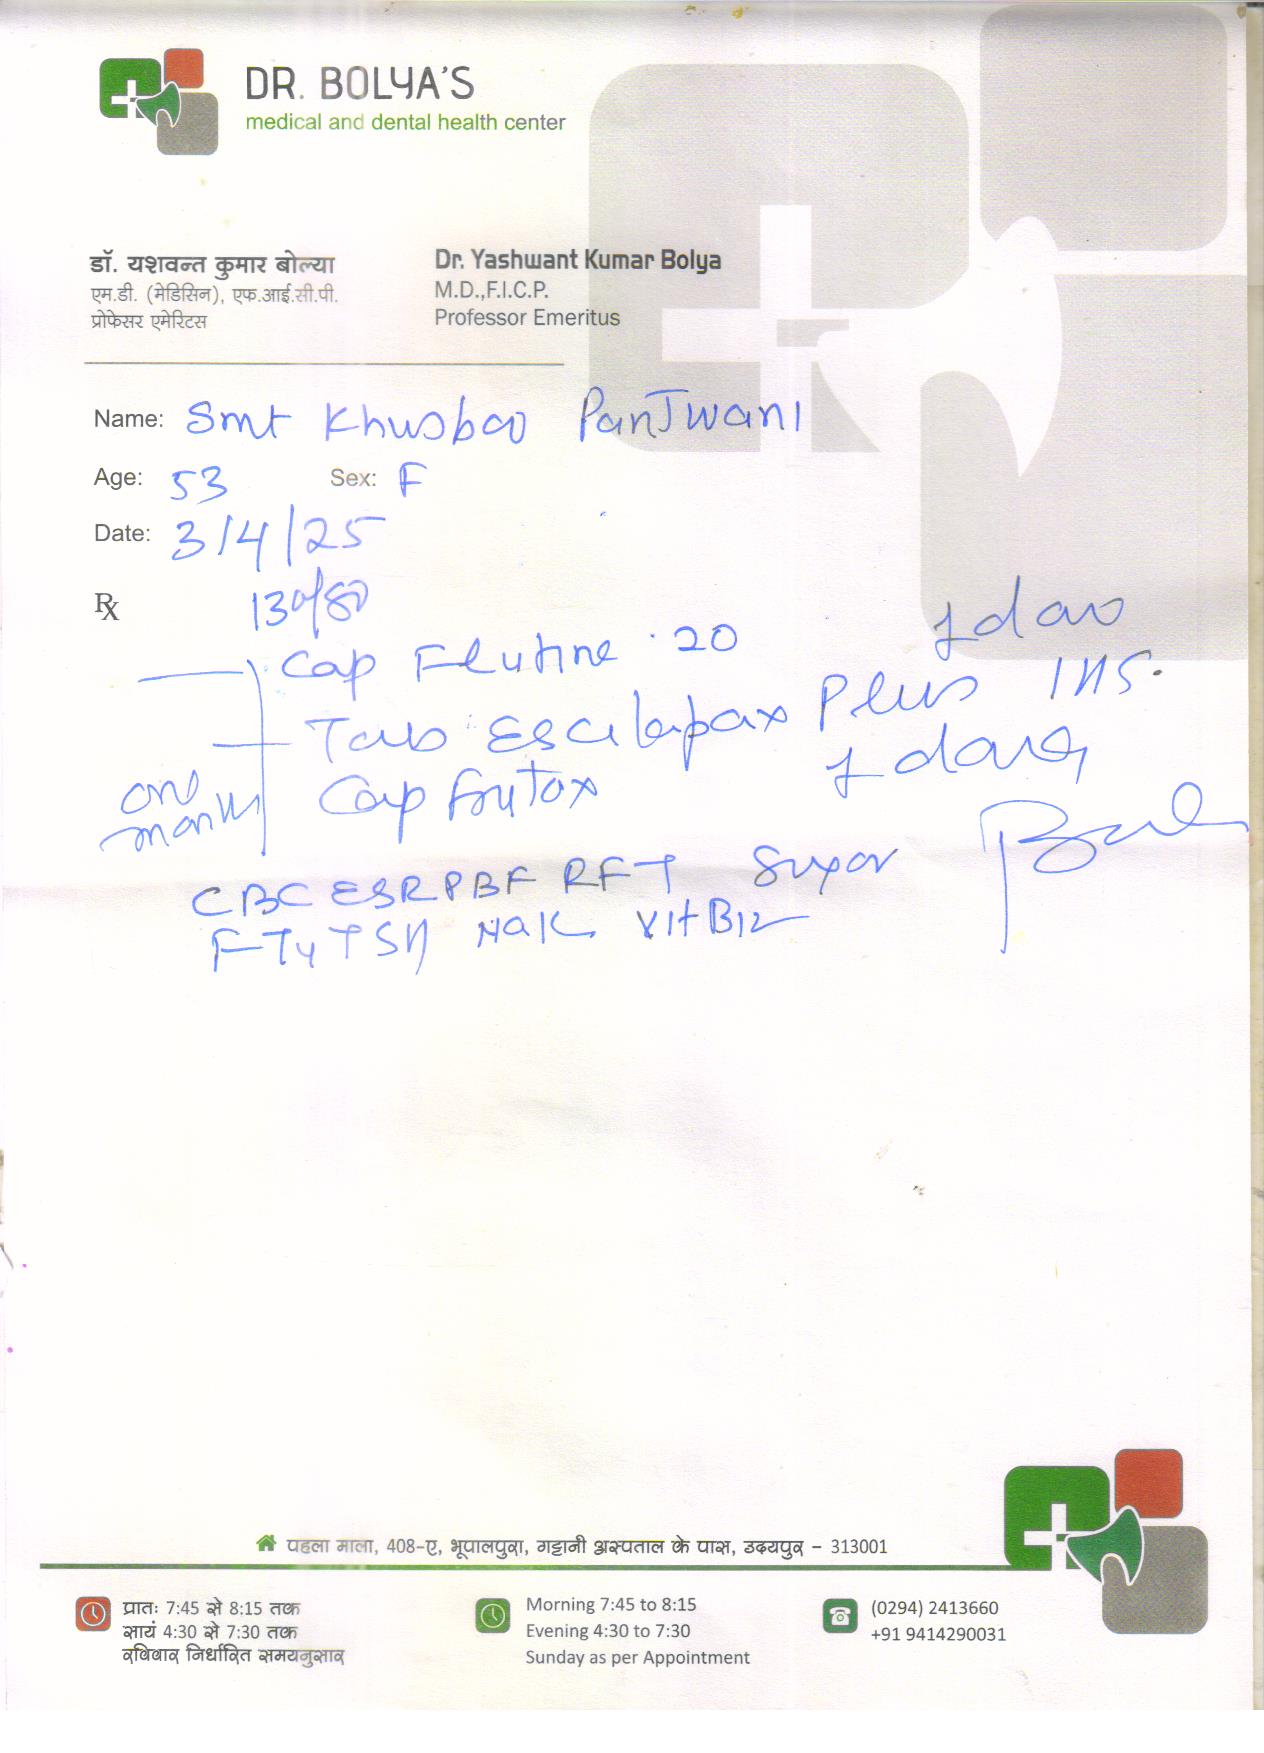 DR. BOLYA'S
medical and dental health center
डॉ. यशवन्त कुमार बोल्या
एम.डी. (मेडिसिन), एफ.आई.सी.पी.
प्रोफेसर एमेरिटस
Dr. Yashwant Kumar Bolya
M.D.,F.I.C.P.
Professor Emeritus
Name: Smt Khusboo PanJwani
Age: 53 Sex: F
Date: 3/4/25
Rx 130/80
Cap Flutine 20 1 daw
Tab Plus 1 HS.
Cap 1 daily
one month
CBC ESR PBF RFT Sugar
FT4 TSH Na K Vit B12
पहला माला, 408-ए, भूपालपुरा, गट्टानी अस्पताल के पास, उदयपुर - 313001
प्रातः 7:45 से 8:15 तक
सायं 4:30 से 7:30 तक
रविवार निर्धारित समयनुसार
Morning 7:45 to 8:15
Evening 4:30 to 7:30
Sunday as per Appointment
(0294) 2413660
+91 9414290031